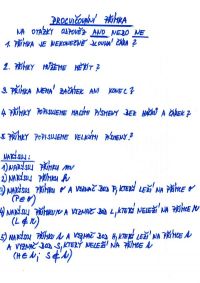 PROCVIČOVÁNÍ PŘÍMKA
NA OTÁZKY ODPOVĚZ ANO NEBO NE
1. PŘÍMKA JE NEKONEČNĚ DLOUHÁ ČÁRA?
2. PŘÍMKY MŮŽEME MĚŘIT?
3. PŘÍMKA NEMÁ ZAČÁTEK ANI KONEC?
4. PŘÍMKY POPISUJEME MALÝMI PÍSMENY BEZ HÁČKŮ A ČÁREK?
5. PŘÍMKY POPISUJEME VELKÝMI PÍSMENY?
NARÝSUJ:
1) NARÝSUJ PŘÍMKU m
2) NARÝSUJ PŘÍMKU
3) NARÝSUJ PŘÍMKU o A VYZNAČ BOD P, KTERÝ LEŽÍ NA PŘÍMCE o
(P ∈ o)
4) NARÝSUJ PŘÍMKU A VYZNAČ BOD L, KTERÝ NELEŽÍ NA PŘÍMCE
(L ∉
5) NARÝSUJ PŘÍMKU A VYZNAČ BOD H, KTERÝ LEŽÍ NA PŘÍMCE
A VYZNAČ BOD S, KTERÝ NELEŽÍ NA PŘÍMCE
(H ∈ ; S ∉